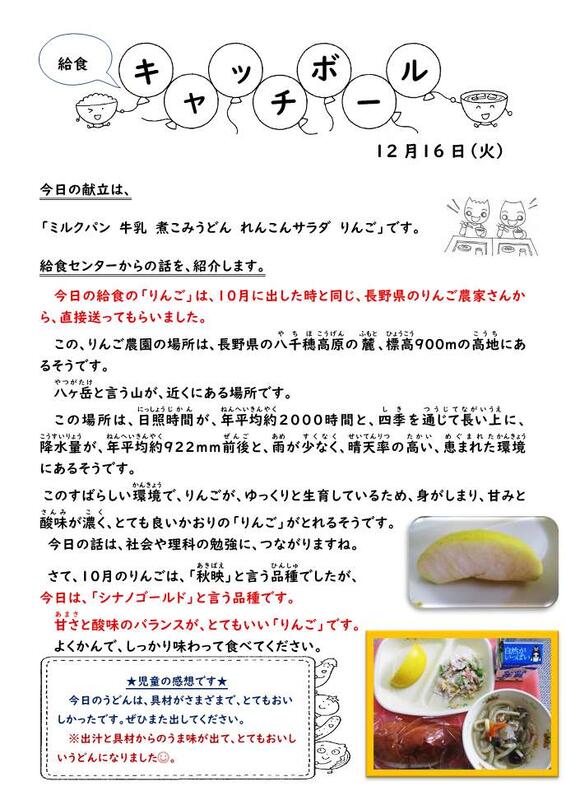 給食
キャッチボール
12月16日(火)
今日の献立は、
「ミルクパン 牛乳 煮こみうどん れんこんサラダ りんご」です。
給食センターからの話を、紹介します。
今日の給食の「りんご」は、10月に出した時と同じ、長野県のりんご農家さんか
ら、直接送ってもらいました。
やちほこうげん ふもと ひょうこう こうち
この、りんご農園の場所は、長野県の八千穂高原の麓、標高900mの高地にあ
るそうです。
やつがたけ
八ヶ岳と言う山が、近くにある場所です。
にっしょうじかん ねんへいきんやく しき つうじてながいうえ
この場所は、日照時間が、年平均約2000時間と、四季を通じて長い上に、
こうすいりょう ねんへいきんやく ぜんご あめ すくなく せいてんりつ たかい めぐまれたかんきょう
降水量が、年平均約922mm前後と、雨が少なく、晴天率の高い、恵まれた環境
にあるそうです。
かんきょう
このすばらしい環境で、りんごが、ゆっくりと生育しているため、身がしまり、甘みと
さんみ こく
酸味が濃く、とても良いかおりの「りんご」がとれるそうです。
今日の話は、社会や理科の勉強に、つながりますね。
あきばえ ひんしゅ
さて、10月のりんごは、「秋映」と言う品種でしたが、
今日は、「シナノゴールド」と言う品種です。
あまさ
甘さと酸味のバランスが、とてもいい「りんご」です。
よくかんで、しっかり味わって食べてください。
★児童の感想です★
今日のうどんは、具材がさまざまで、とてもおい
しかったです。ぜひまた出してください。
※出汁と具材からのうま味が出て、とてもおいし
いうどんになりました☺。
自然が
いっぱい